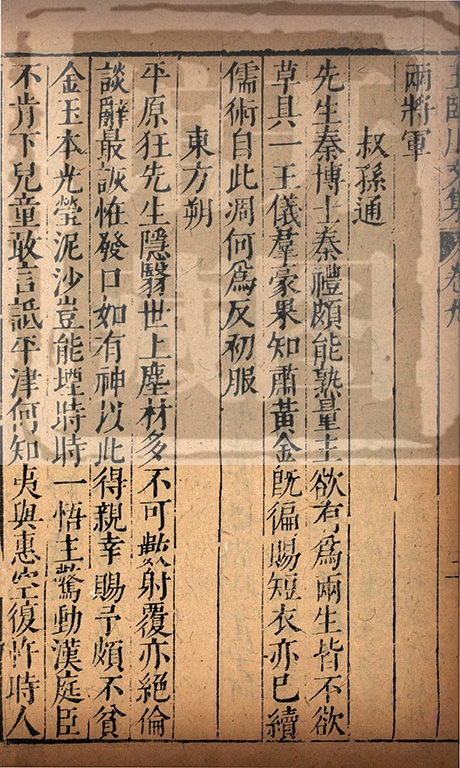 王臨川文集 卷九
兩將軍
叔孫通
先生秦博士秦禮頗能熟量主欲有爲兩生皆不欲
草具一王儀羣豪果知肅黃金旣徧賜短衣亦已續
儒術自此凋何爲反初服
東方朔
平原狂先生隱翳世上塵材多不可數射覆亦絕倫
談辭最詼恠發口如有神以此得親幸賜予頗不貧
金玉本光瑩泥沙豈能堙時時一悟主驚動漢庭臣
不肯下兒童敢言詆平津何知夷與惠空復忤時人